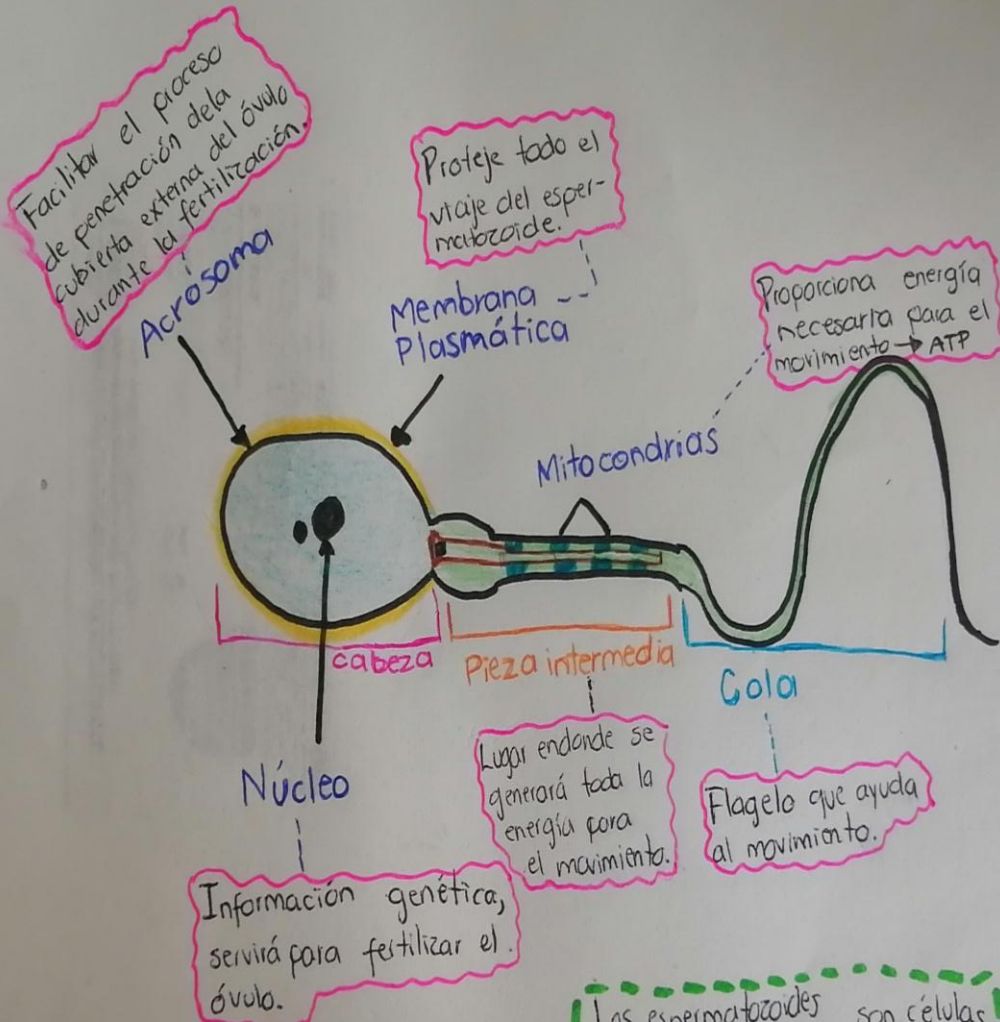 Facilitar el proceso
de penetración dela
cubierta externa del óvulo
durante la fertilización.
Acrosoma
Proteje todo el
viaje del esper-
matozoide.
Membrana
Plasmática
Proporciona energía
necesaria para el
movimiento → ATP
Mitocondrias
cabeza
Pieza intermedia
Cola
Núcleo
Lugar endonde se
generará toda la
energía para
el movimiento.
Flagelo que ayuda
al movimiento.
Información genética,
servirá para fertilizar el
óvulo.
Los espermatozoides son células